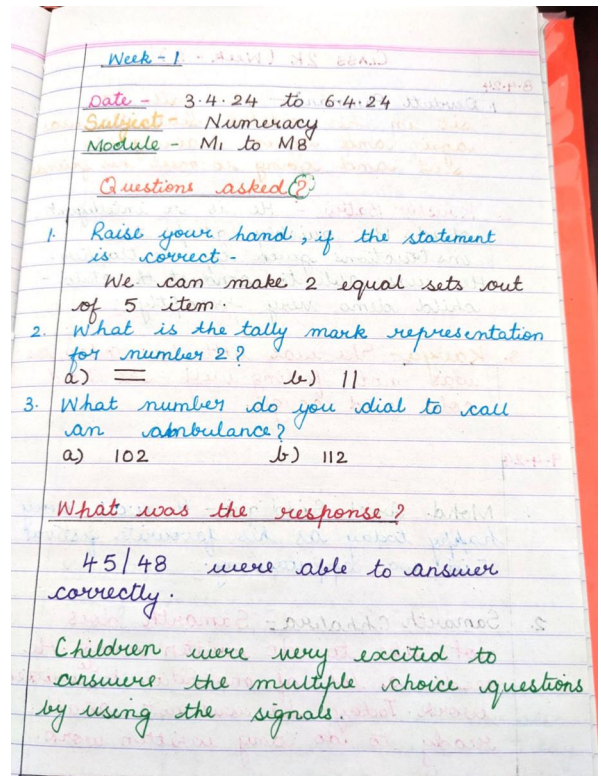 Week - 1
Date - 3.4.24 to 6.4.24
Subject - Numeracy
Module - M1 to M8
Questions asked ?
1. Raise your hand, if the statement
is correct -
We can make 2 equal sets out
of 5 item.
2. What is the tally mark representation
for number 2?
a) = b) ||
3. What number do you dial to call
an ambulance?
a) 102 b) 112
What was the response?
45/48 were able to answer
correctly.
Children were very excited to
answere the multiple choice questions
by using the signals.